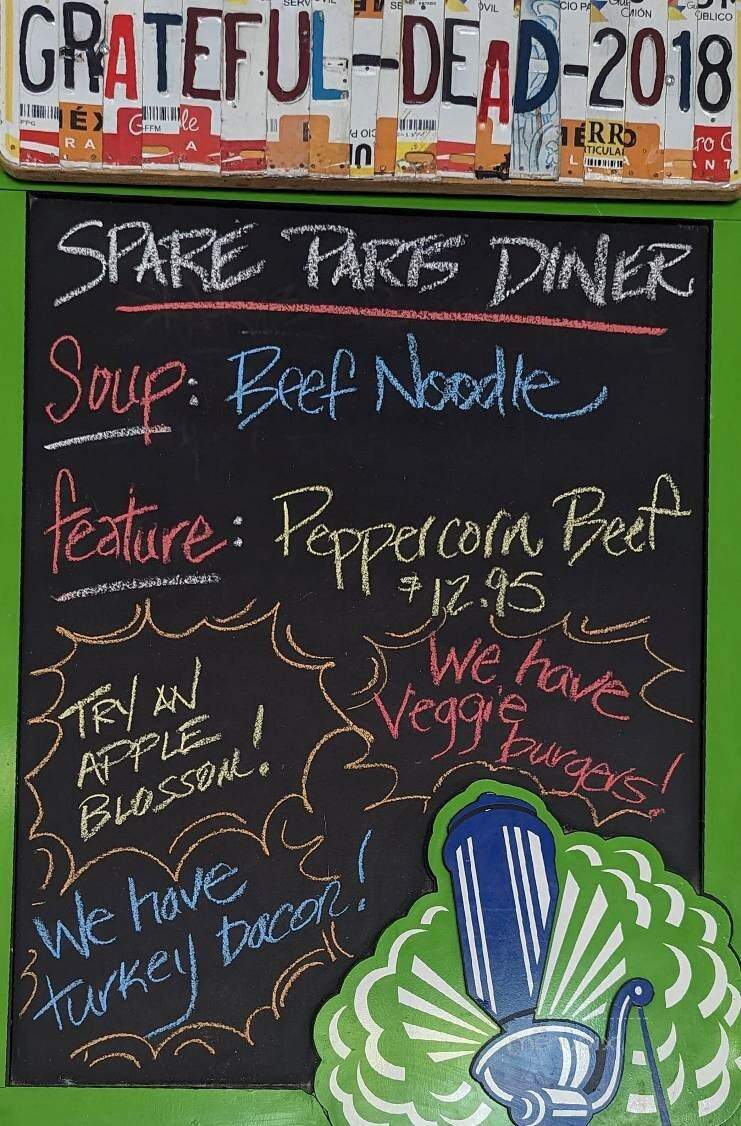 GRATEFUL-DEAD-2018
SPARE PARTS DINER
Soup: Beef Noodle
feature: Peppercorn Beef
$12.95
TRY AN
APPLE
BLOSSOM!
We have
Veggie
burgers!
We have
turkey bacon!